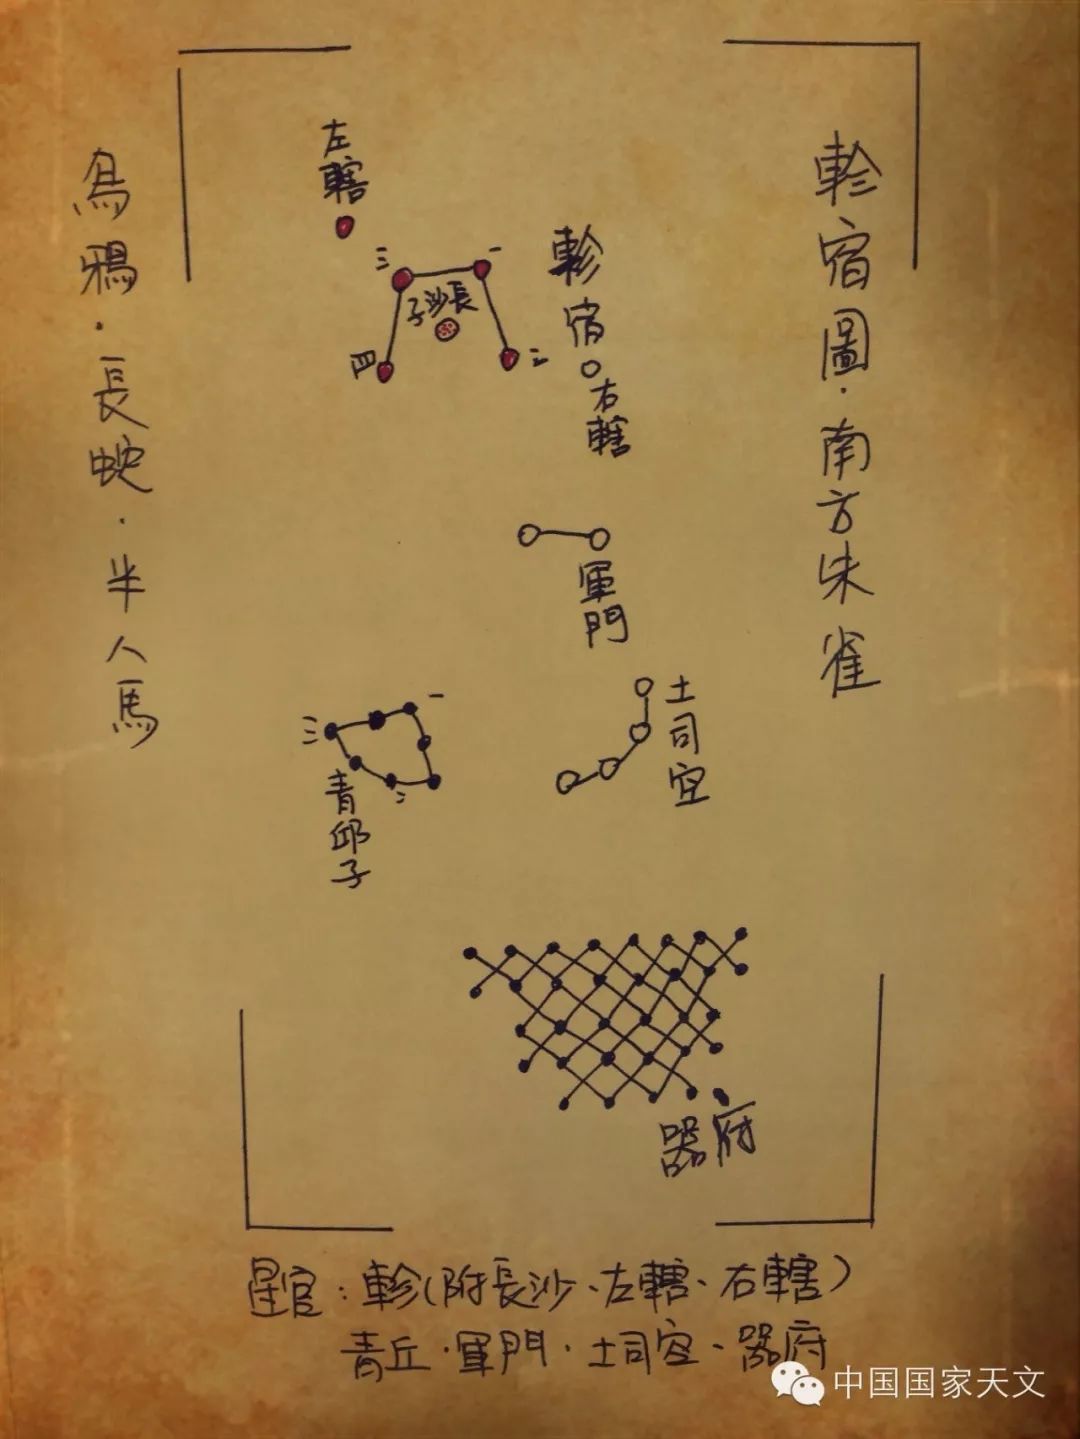 軫宿圖·南方朱雀
烏鴉·長蛇·半人馬
左轄
三
一
軫宿
長沙子
四
二
右轄
軍門
土司空
一
三
二
青邱子
器府
星官：軫(附長沙、左轄、右轄)
青丘·軍門·土司空、器府
中国国家天文